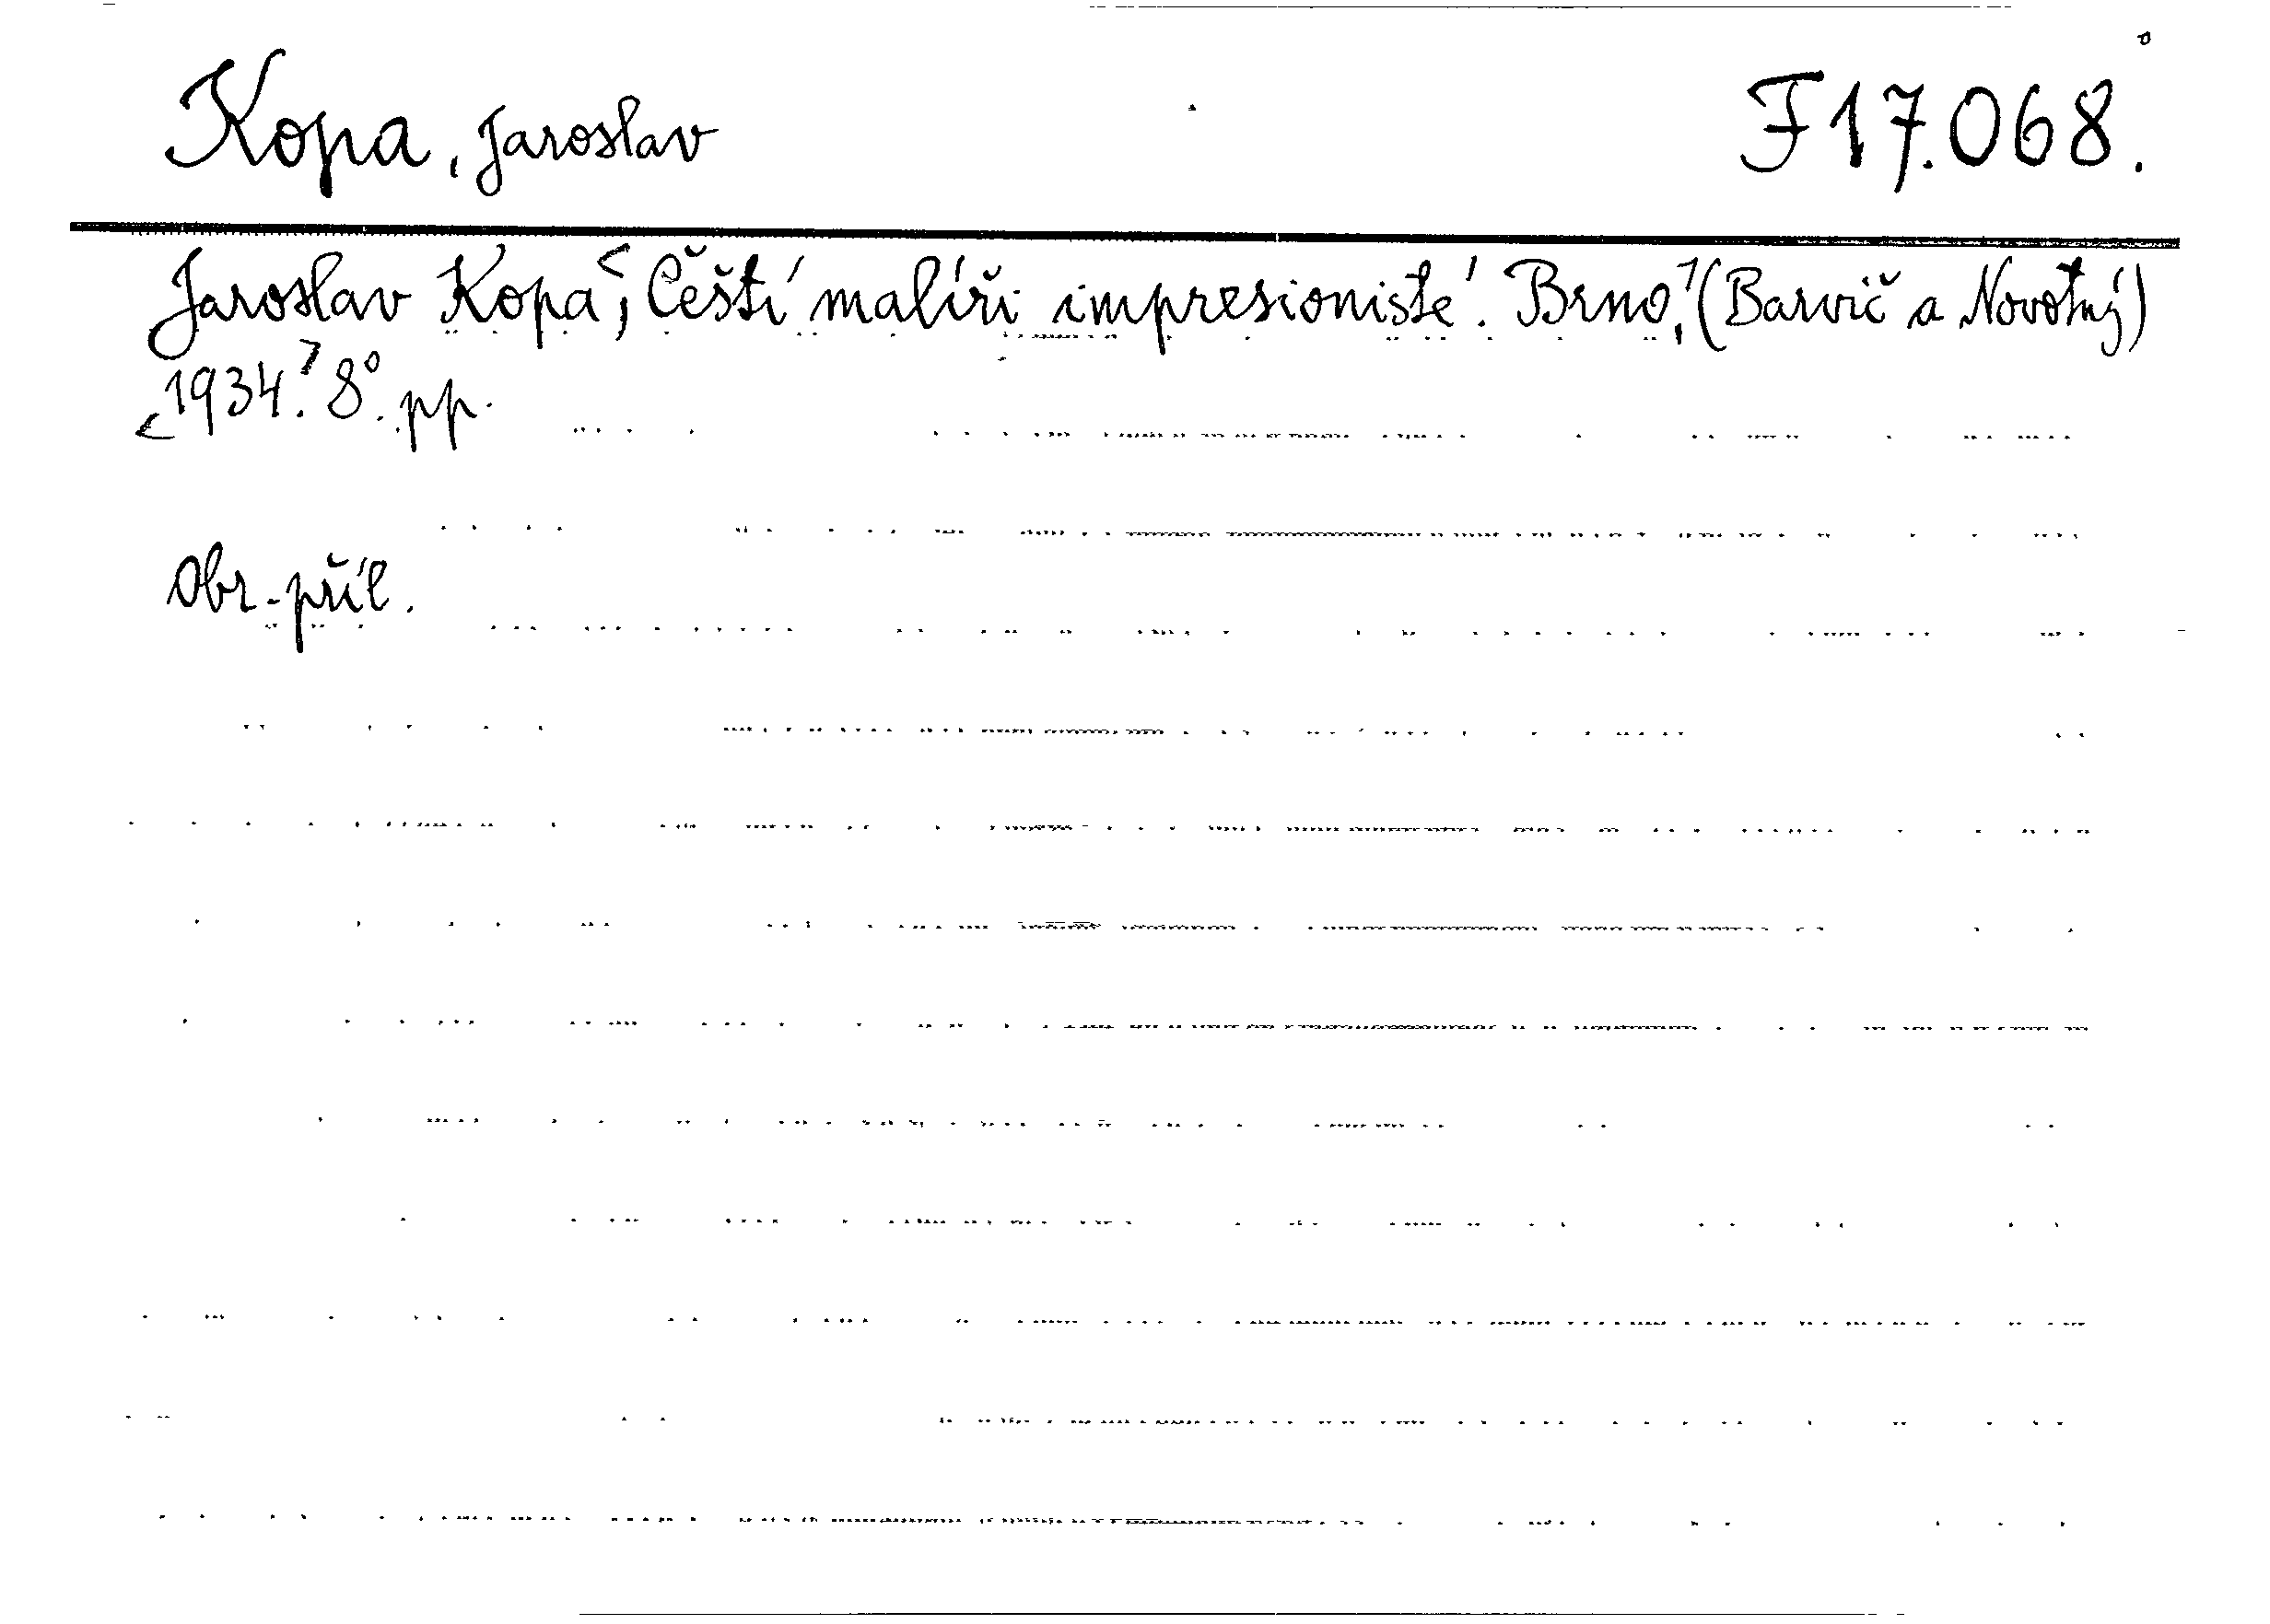 Kopa, Jaroslav F 17.068.
Jaroslav Kopa<; Čeští malíři impresionisté. Brno,> (Barvič a Novotný)
<1934.> 8°. pp.
Obr.-příl.